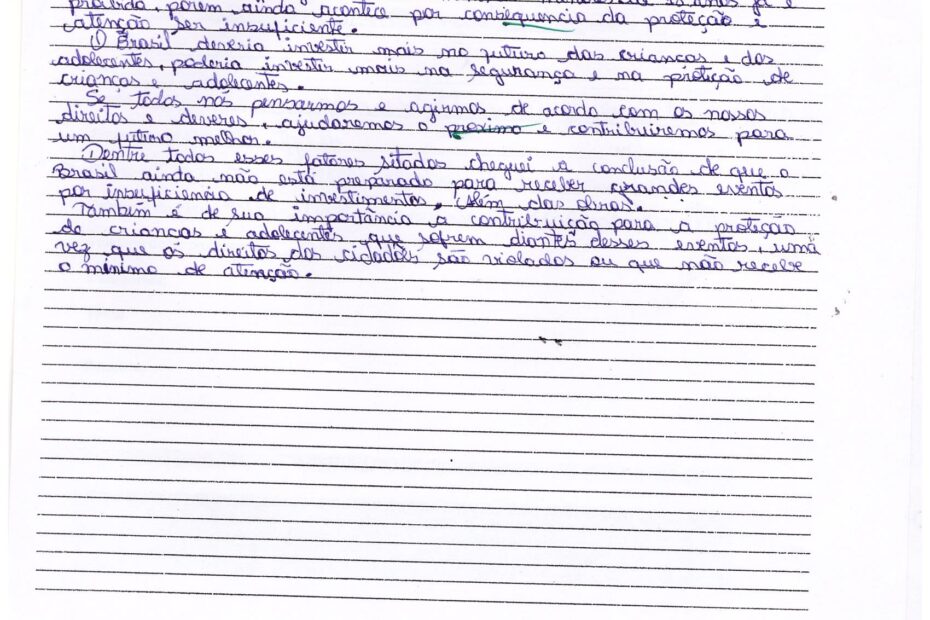 proibido, porem ainda acontece por consequencia da proteção e
atenção ser insuficiente.
O Brasil deveria investir mais no futuro das crianças e dos
adolecentes, poderia investir mais na segurança e na protição de
crianças e adolecentes.
Se todos nós pensarmos e agirmos de acordo com os nossos
direitos e deveres, ajudaremos o proximo e contribuiremos para
um futuro melhor.
Dentre todos esses fatores sitados cheguei a conclusão de que o
Brasil ainda não está preparado para receber grandes eventos
por insuficiencia de investimentos, Além das obras.
Também é de sua importância a contribuição para a proteção
de crianças e adolecentes que sofrem diantes desses eventos, uma
vez que os direitos dos cidadões são violados ou que não recebe
o mínimo de atenção.